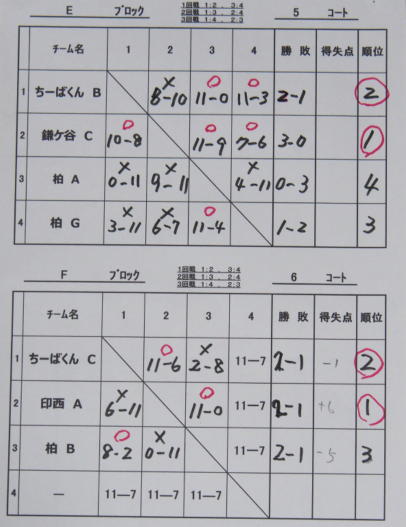 E ブロック 1回戦 1:2 , 3:4 5 コート
2回戦 1:3 , 2:4
3回戦 1:4 , 2:3
チーム名 1 2 3 4 勝 敗 得失点 順位
1 ちーばくん B × 8-10 ○ 11-0 ○ 11-3 2-1 2
2 鎌ケ谷 C ○ 10-8 ○ 11-9 ○ 7-6 3-0 1
3 柏 A × 0-11 × 9-11 × 4-11 0-3 4
4 柏 G × 3-11 × 6-7 ○ 11-4 1-2 3
F ブロック 1回戦 1:2 , 3:4 6 コート
2回戦 1:3 , 2:4
3回戦 1:4 , 2:3
チーム名 1 2 3 4 勝 敗 得失点 順位
1 ちーばくん C ○ 11-6 × 2-8 11—7 2-1 -1 2
2 印西 A × 6-11 ○ 11-0 11—7 2-1 +6 1
3 柏 B ○ 8-2 × 0-11 11—7 2-1 -5 3
4 — 11—7 11—7 11—7